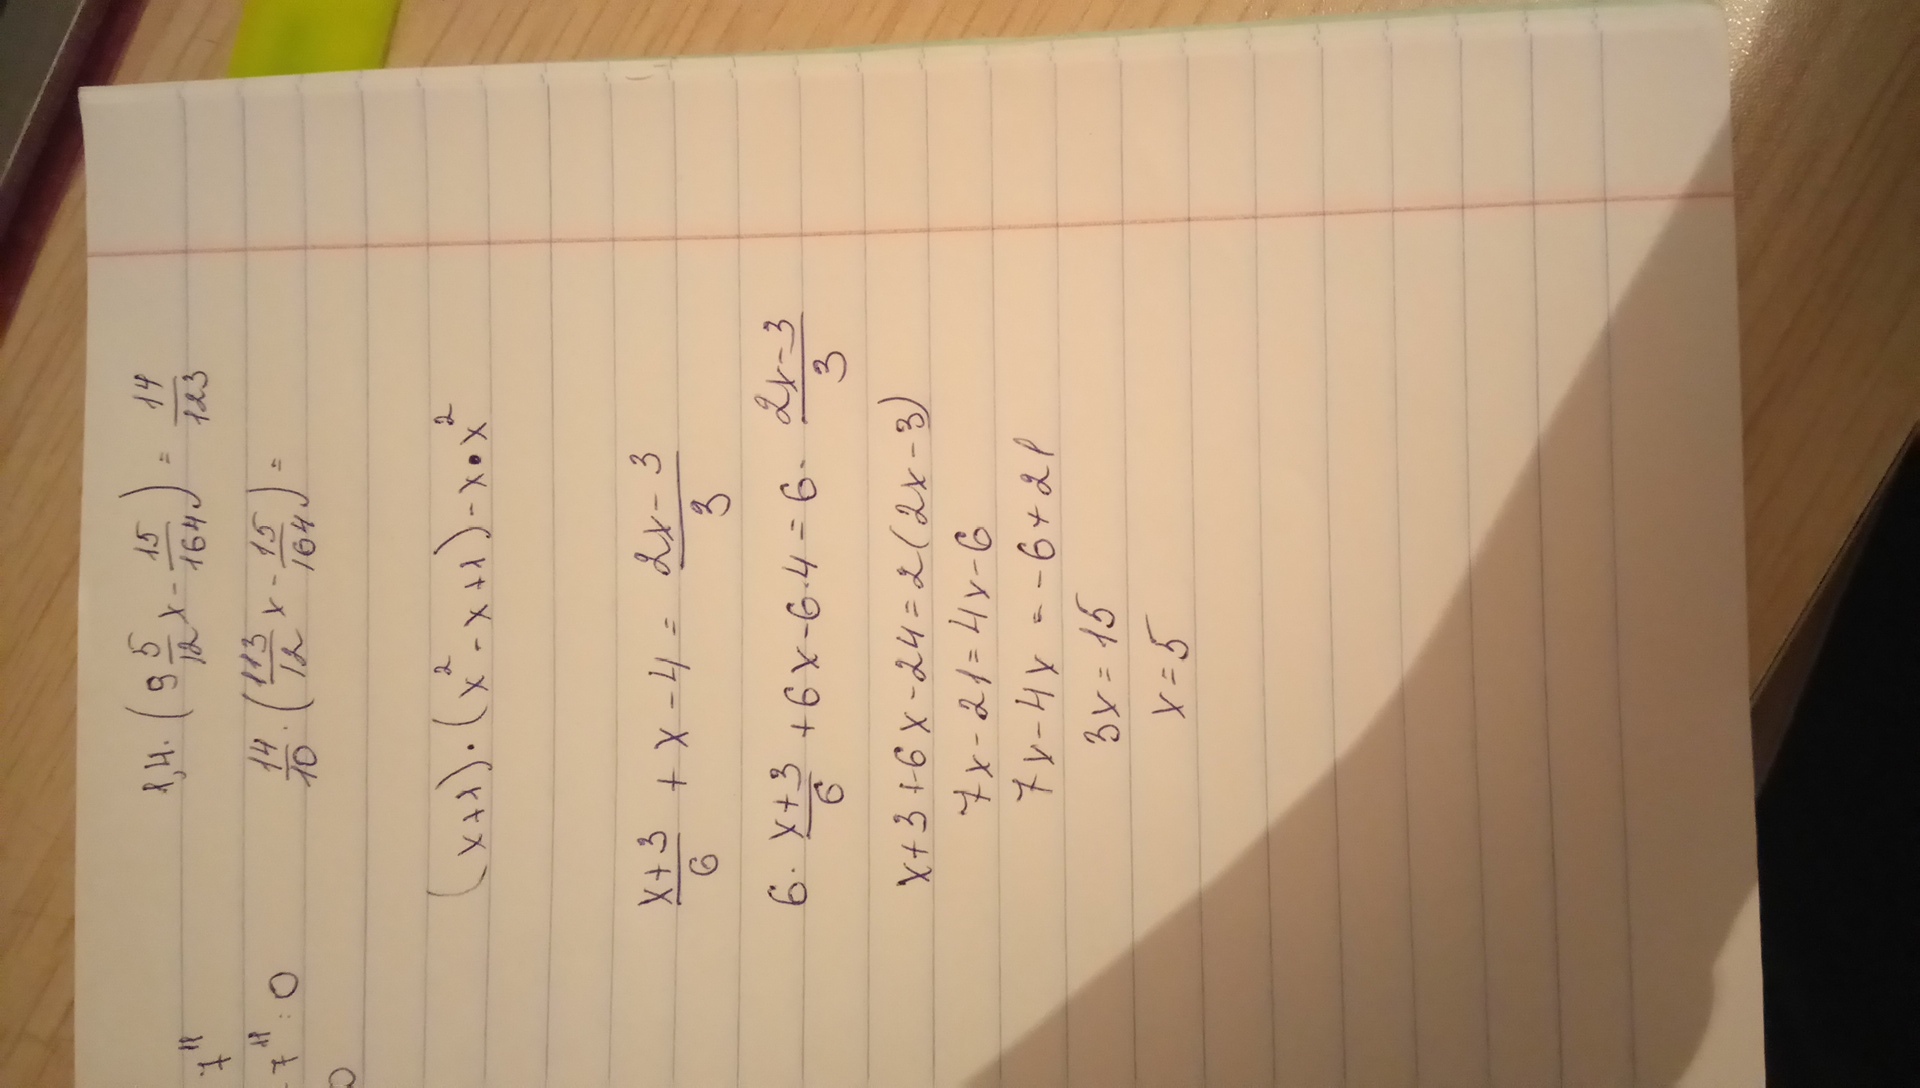 1,4·(9 5/12 x - 15/164) = 14/123
14/10·(113/12 x - 15/164) =
(x+1)·(x² - x+1) - x·x²
(x+3)/6 + x - 4 = (2x-3)/3
6·(x+3)/6 + 6x - 6·4 = 6·(2x-3)/3
x+3+6x-24=2(2x-3)
7x-21=4x-6
7x-4x=-6+21
3x=15
x=5
7¹¹
-7¹¹:0